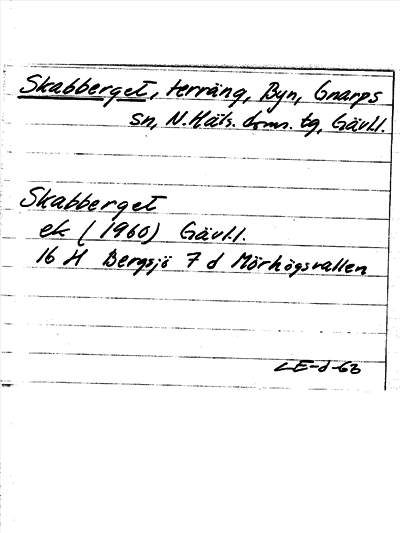 Skabberget, terräng, Byn, Gnarps
sn, N.Häls. doms. tg, Gävl.l.
Skabberget
ek (1960) Gävl.l.
16 H Bergsjö 7 d Mörhögsvallen
LE-d-63